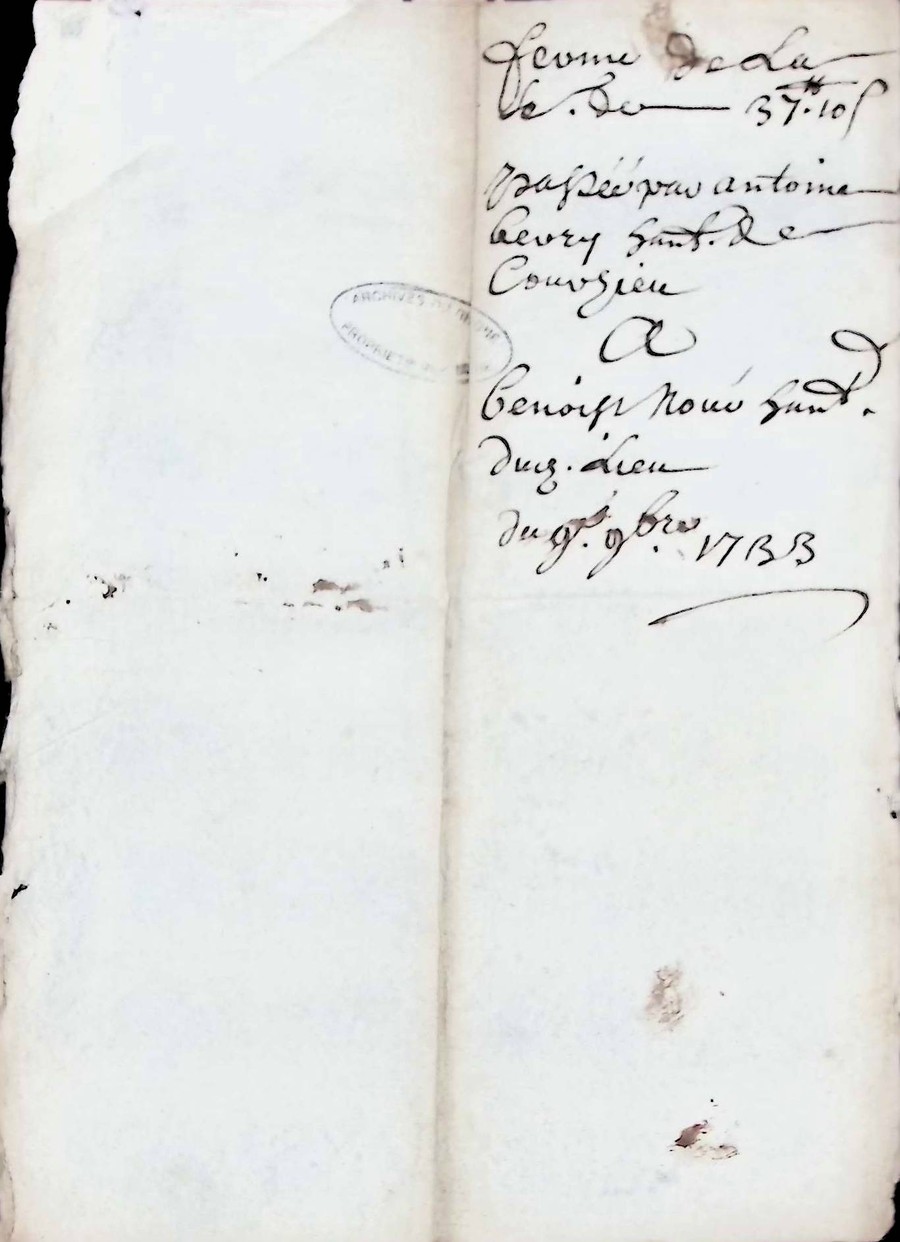 ferme de La
ce. de 37.tt 10 s
passéé par antoine
bevry hant. de
Courzieu
A
benoist hant.
dud. Lieu
du 9e. 9bre 1733
ARCHIVES
PROPRIETE